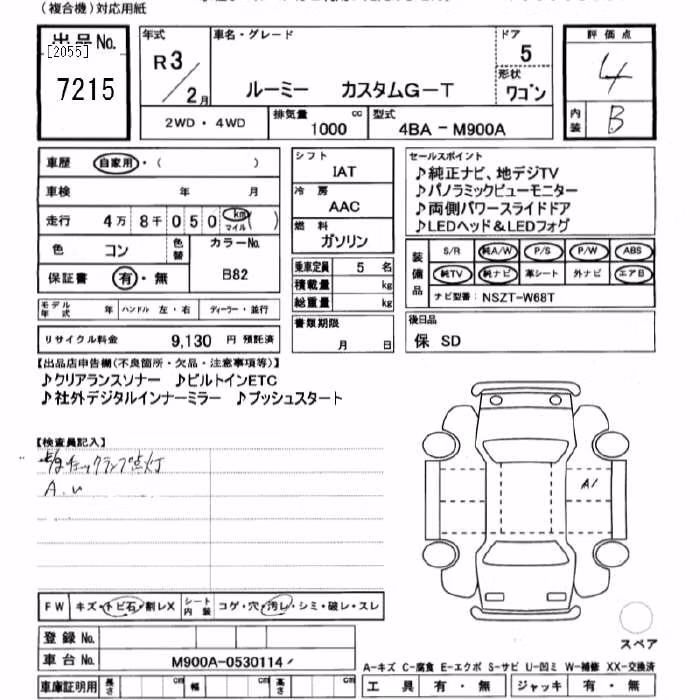 (複合機)対応用紙
出品No.
[2055]
7215
年式
R3/2月
車名・グレード
ルーミー カスタムG-T
ドア
5
形状
ワゴン
2WD・4WD
排気量
1000 cc
型式
4BA-M900A
評価点
4
内装
B
車歴 自家用・( )
車検 年 月
走行 4万8千050 km マイル ( )
色 コン 色替
カラーNo. B82
保証書 有・無
モデル年式 年 ハンドル 左・右 ディーラー・並行
リサイクル料金 9,130 円 預託済
シフト
IAT
冷房
AAC
燃料
ガソリン
乗車定員 5 名
積載量 kg
総重量 kg
書類期限
月 日
セールスポイント
♪純正ナビ、地デジTV
♪パノラミックビューモニター
♪両側パワースライドドア
♪LEDヘッド&LEDフォグ
装備品
S/R 純A/W P/S P/W ABS
純TV 純ナビ 革シート 外ナビ エアB
ナビ型番: NSZT-W68T
後日品
保 SD
【出品店申告欄(不良箇所・欠品・注意事項等)】
♪クリアランスソナー ♪ビルトインETC
♪社外デジタルインナーミラー ♪プッシュスタート
【検査員記入】
チェックランプ点灯
A.U
A1
FW キズ・トビ石・割レX シート内装 コゲ・穴・汚レ・シミ・破レ・スレ
登録No.
車台No. M900A-0530114
車庫証明用 長さ cm 幅 cm 高さ cm
スペア
A-キズ C-腐食 E-エクボ S-サビ U-凹ミ W-補修 XX-交換済
工具 有・無 ジャッキ 有・無